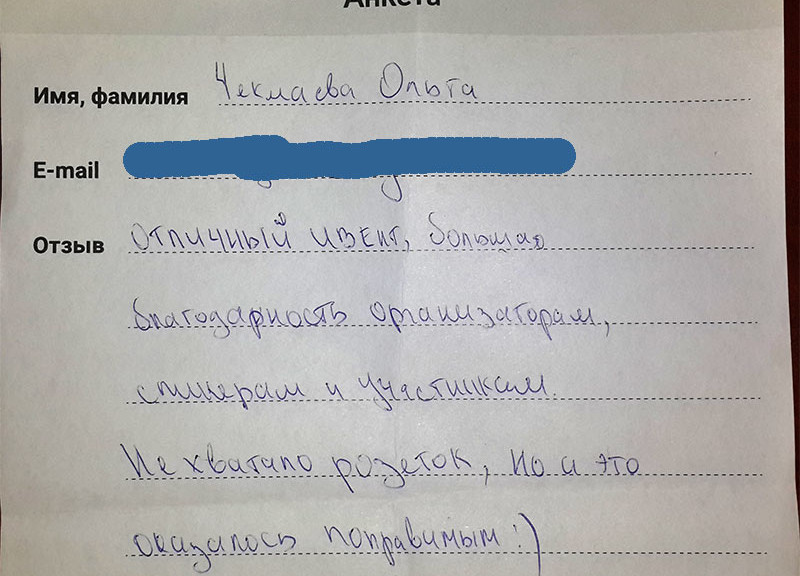 Анкета
Имя, фамилия Чекмаева Ольга
E-mail
Отзыв Отличный ивент, большая
благодарность организаторам,
спикерам и участникам.
Не хватало розеток, но и это
оказалось поправимым :)